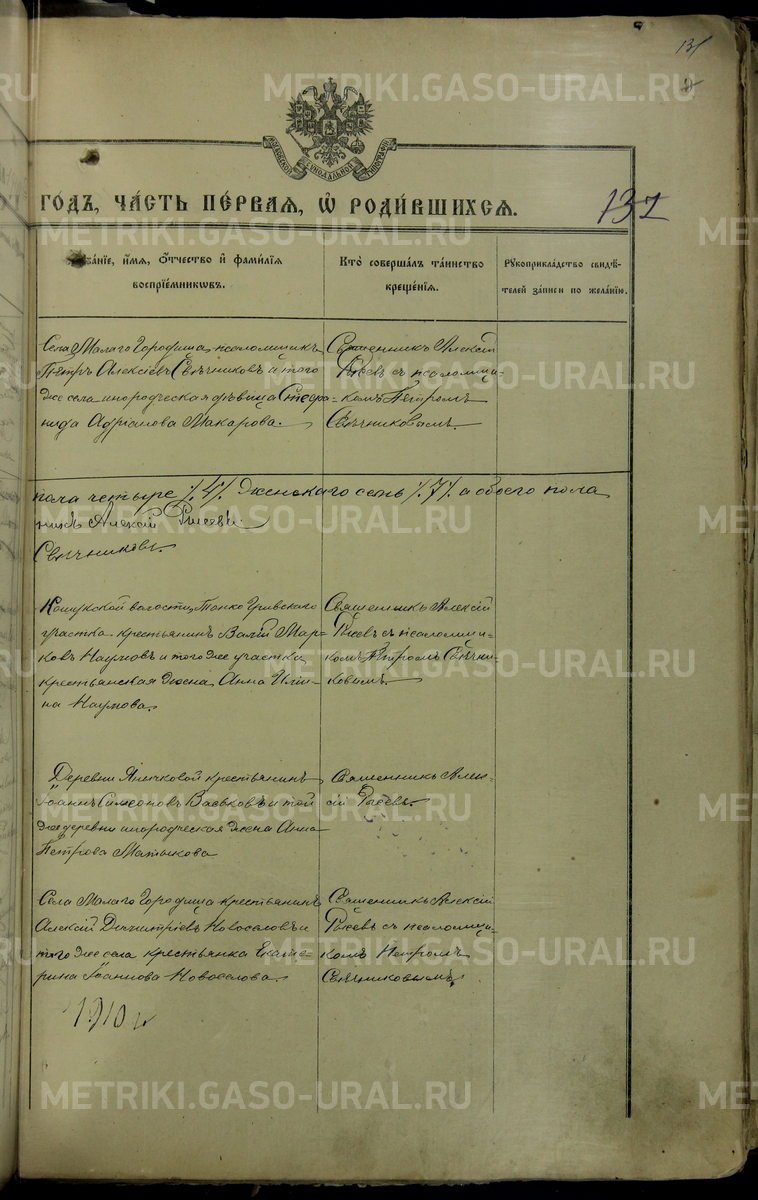 131
METRIKI.GASO-URAL.RU
МОСКОВСКОЙ СѴНОДАЛЬНОЙ ТИПОГРАФІИ
ГОДЪ, ЧАСТЬ ПЕРВАЯ, Ѡ РОДИВШИХСЯ.
131
Званіе, имя, отчество и фамилія воспріемниковъ.
Кто совершалъ таинство крещенія.
Рукоприкладство свидѣтелей записи по желанію.
Села Малаго Городища псаломщикъ
Петръ Алексіевъ Свѣчниковъ и того
же села инородческая дѣвица Стефа-
нида Адріанова Макарова.
Священникъ Алексій
Рысевъ съ псаломщи-
комъ Петромъ
Свѣчниковымъ.
пола четыре /4/. Женскаго семь /7/. а обоего пола
никъ Алексій Рысевъ.
Свѣчниковъ.
Кошукской волости, Тонко Гривскаго
участка крестьянинъ Валій Мар-
ковъ Наумовъ и того же участка
крестьянская жена Анна Ильи-
на Наумова.
Священникъ Алексій
Рысевъ съ псаломщи-
комъ Петромъ Свѣчни-
ковымъ.
Деревни крестьянинъ
Іоаннъ Симеоновъ Васьковъ и той
же деревни инородческая жена Анна
Петрова Матыкова
Священникъ Алек-
сій Рысевъ.
Села Малаго Городища крестьянинъ
Алексій Димитріевъ Новоселовъ и
того же села крестьянка Екате-
рина Іоаннова Новоселова.
Священникъ Алексій
Рысевъ съ псаломщи-
комъ Петромъ
Свѣчниковымъ.
1910 г.
METRIKI.GASO-URAL.RU